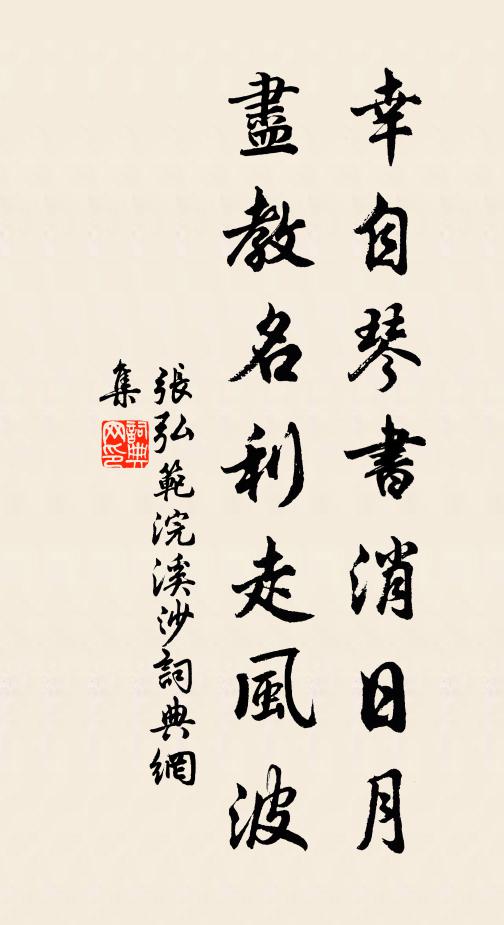 幸自琴書消日月
盡教名利走風波
張弘範浣溪沙詞典網
集
詞典网印